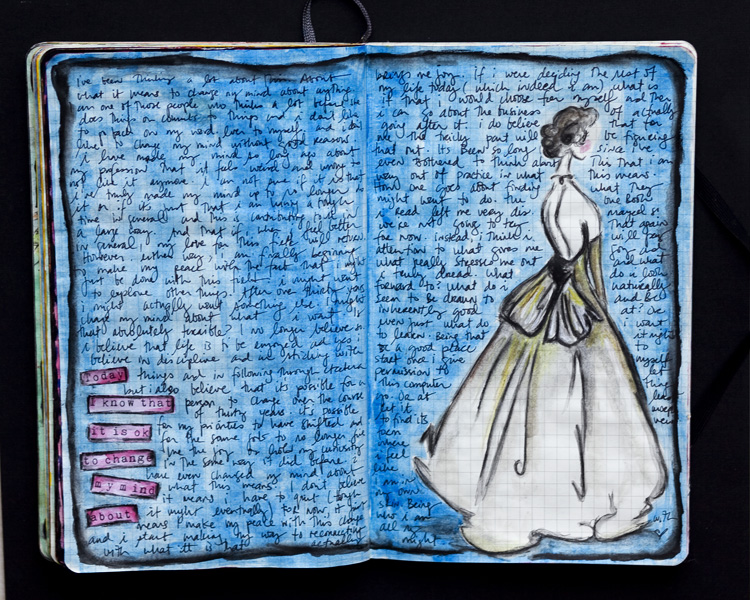 i've been thinking a lot about about
what it means to change my mind about anything.
am one of those people who thinks a lot before she
does things or commits to things and i don't like
to go back on my word, even to myself and i don't
like to change my mind without good reasons
i have made my mind so long ago about
my profession that it feels weird and wrong to
not do it anymore. i am not sure if it is that
i've truly made my mind to no longer do
it or if what that i am having a tough
time in general and this is contributing to it in
a large way. And that if when i feel better
in general, my love for this field will return.
However either way, i am finally beginning
to make my peace with the fact that i might
just be done with this field. i might want
to explore other things. After over thirty years
i might actually want something else. i might
change my mind about what i want. is
that absolutely terrible? i no longer believe so.
i believe that life is to be enjoyed and yes i
believe in discipline and in sticking with
Today things and in following through etcetera
but i also believe that it's possible for a
I know that person to change over the course
of thirty years. it's possible
it is ok for my priorities to have shifted and
for the same jobs to no longer give
to change me the joy or hold my curiosity
in the same way it did before. i
my mind have even changed my mind about
what this means. i don't believe
about it means i have to quit (though
it might eventually) for now, it just
means i make my peace with this change
and i start making my way to reconnecting
with what it is that actually
brings me joy. If i were deciding the rest of
my life today (which indeed i am) what is
it that i would choose for myself and then
i can go about the business of actually
going after it. i do believe that for
me the tricky part will be figuring
that out. It's been so long since i've
even bothered to think about this that i am
way out of practice in what this means.
how one goes about finding what they
might want to do. the one book
i read left me very dis-
we're not going to try that again
for now. instead, i think i will pay
attention to what gives me joy and
what really stressed me out and what
i truly dread. what do i look
forward to? what do i naturally
seem to be drawn to and be
inherently good at? i've
even just what do i want
to learn. Being that it might
be a good place to
start once i give myself
permission to let
this computer thing
go. Or at least
let it
to find its own
open
where
i feel
like
i am in
my own
skin being
who i am
all my
might.